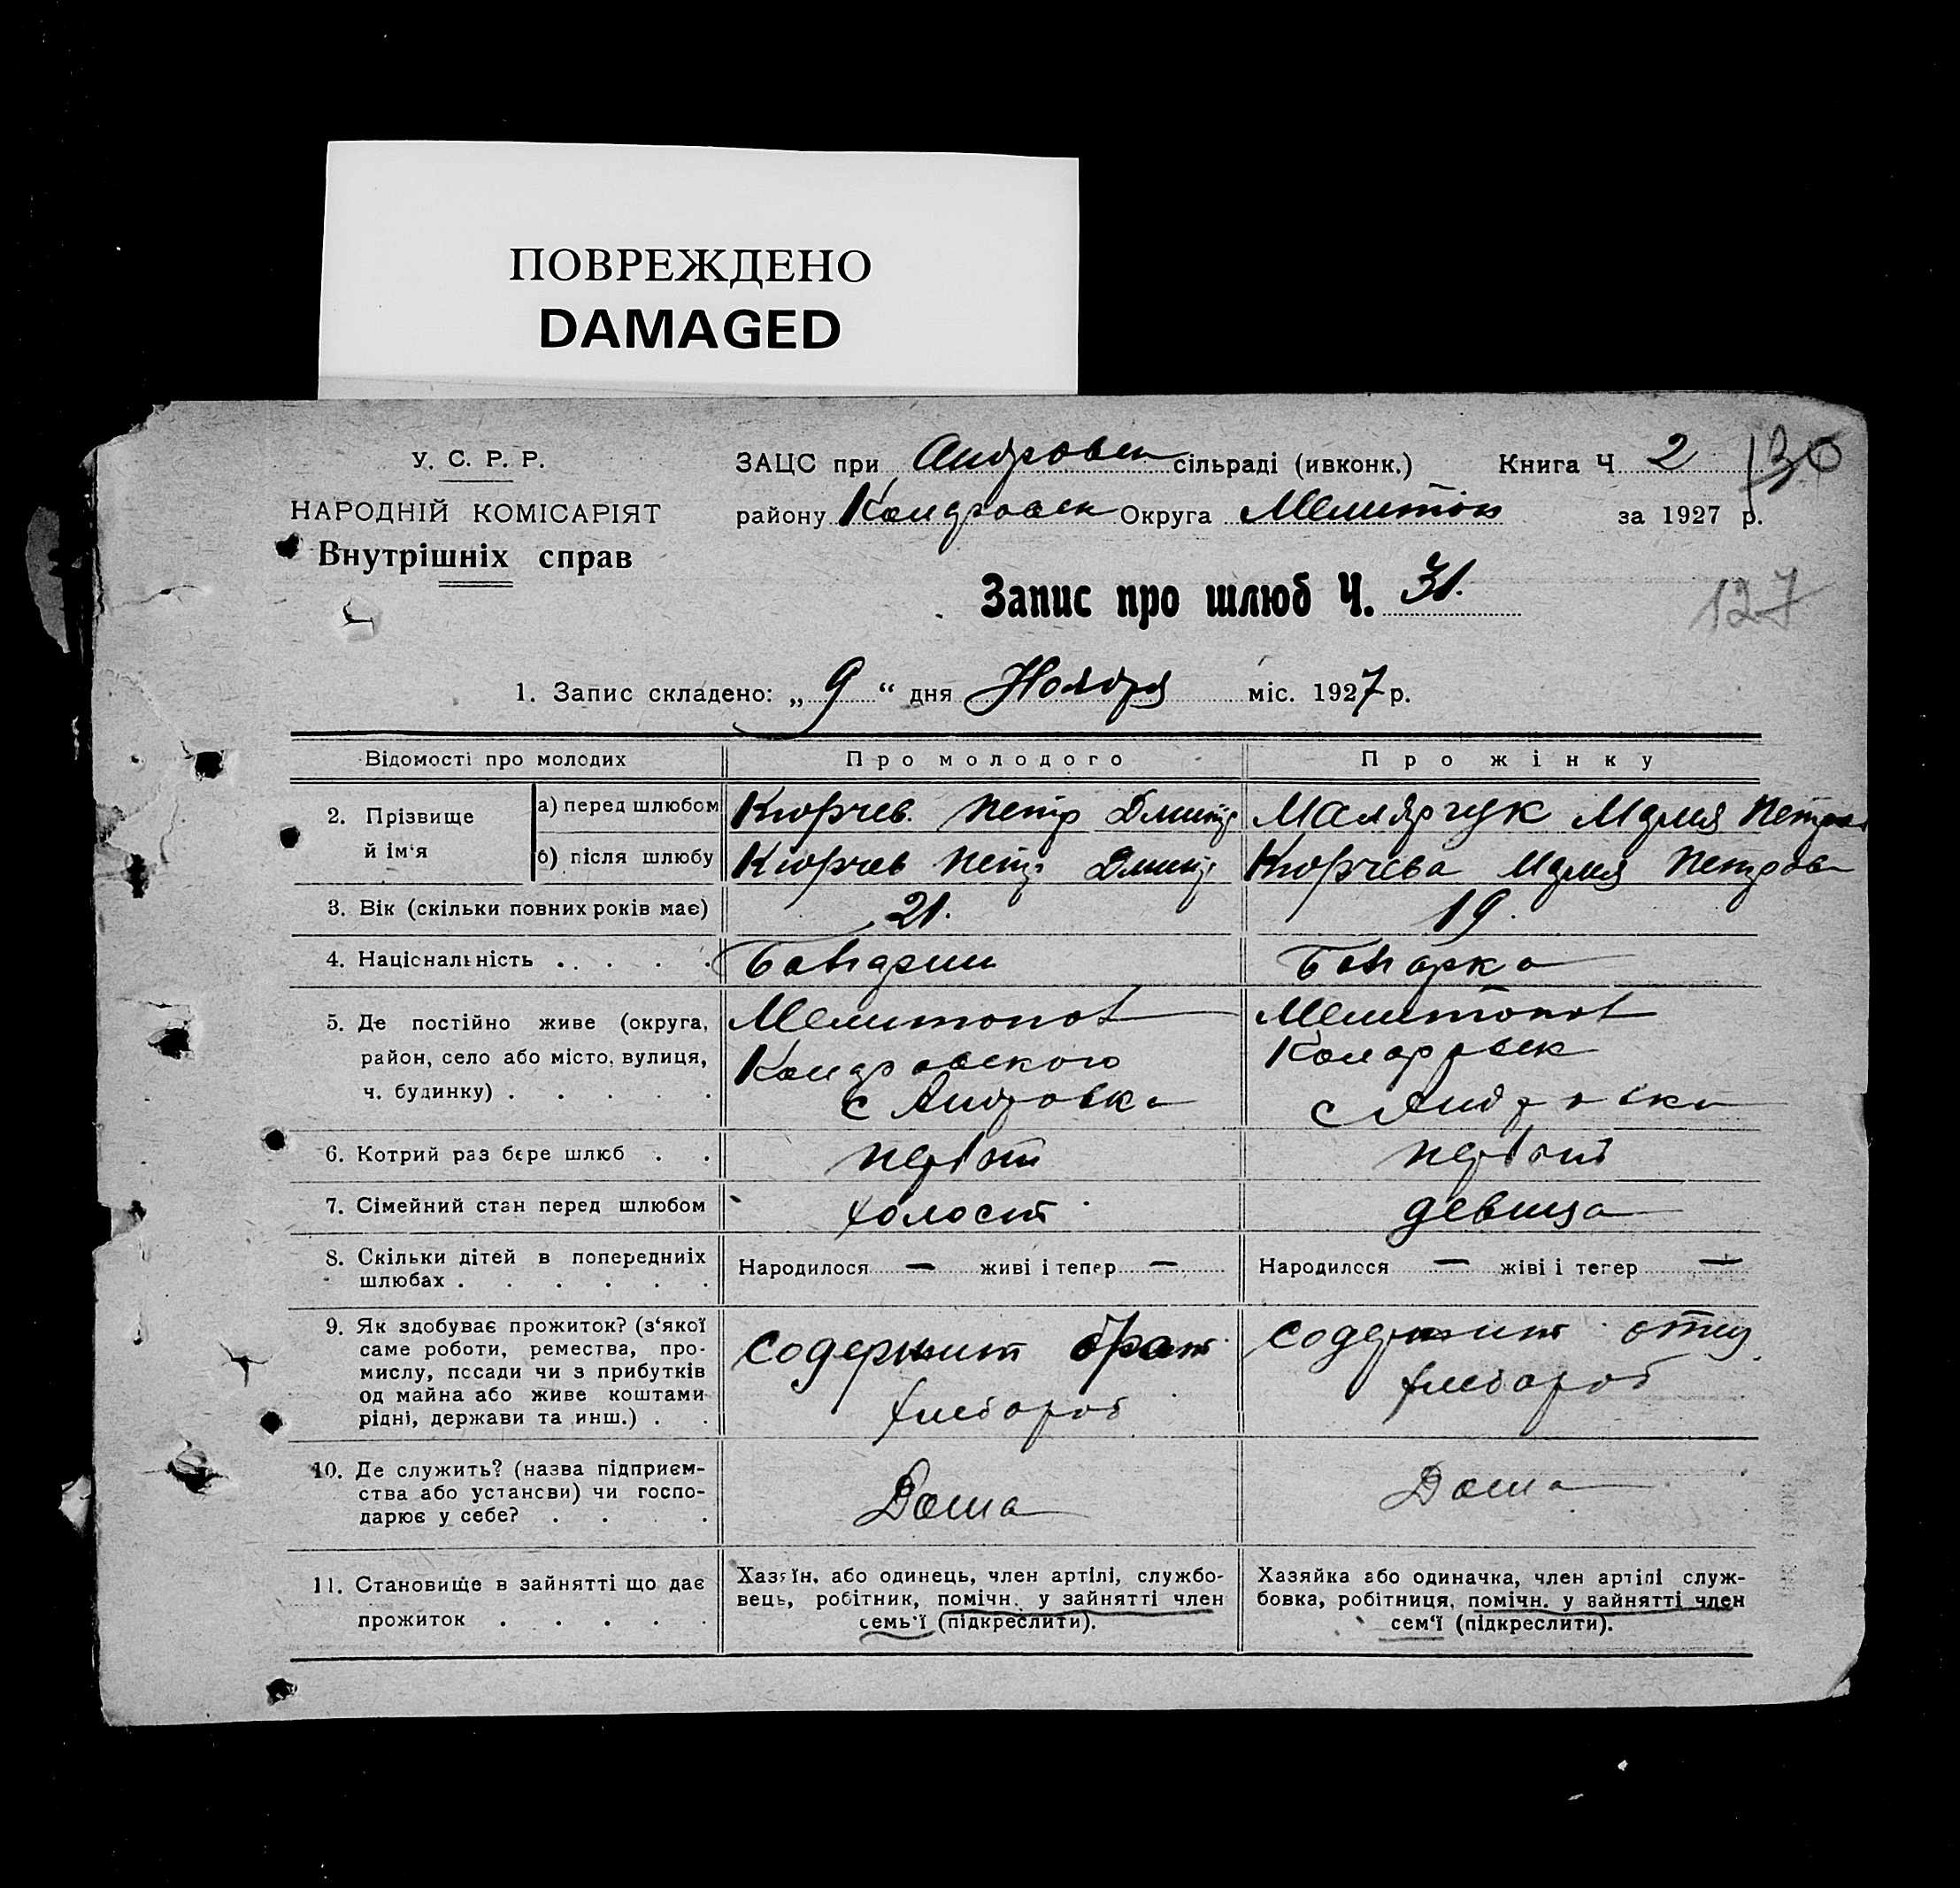 ПОВРЕЖДЕНО
DAMAGED
У. С. Р. Р.
НАРОДНІЙ КОМІСАРІЯТ
Внутрішніх справ
ЗАЦС при Андровск сільраді (ивконк.) Книга Ч 2 130
району Коларовск Округа Мелитоп за 1927 р.
Запис про шлюб Ч. 31.
127
1. Запис складено: „ 9 “ дня Ноября міс. 1927 р.
Відомості про молодих Про молодого Про жінку
2. Прізвище й ім'я
а) перед шлюбом Кюрчев. Петр Дмитр Малярчук Мария Петров
б) після шлюбу Кюрчев Петр Дмитр Кюрчева Мария Петров
3. Вік (скільки повних років має) 21. 19.
4. Національність . . . . . Болгарин Болгарка
5. Де постійно живе (округа, Мелитопол Мелитопол
район, село або місто, вулиця, Коларовского Коларовск
ч. будинку) . . . . . с Андровка с Андровка
6. Котрий раз бере шлюб . . первый первый
7. Сімейний стан перед шлюбом холост девица
8. Скільки дітей в попередниіх
шлюбах . . . . . . Народилося — живі і тепер — Народилося — жіві і тегер —
9. Як здобуває прожиток? (з‘якої
саме роботи, ремества, про-
мислу, пссади чи з прибутків
од майна або живе коштами
рідні, держави та инш.) . .
содержит брат
хлебороб
содержит отец
хлебороб
10. Де служить? (назва підприєм-
ства або устансви) чи госпо-
дарює у себе? . . . .
Дома Дома
11. Становище в зайнятті що дає
прожиток . . . . .
Хазяїн, або одинець, член артілі, службо-
вець, робітник, помічн. у зайнятті член
семь'ї (підкреслити).
Хазяйка або одиначка, член артілі служ-
бовка, робітниця, помічн. у зайнятті член
сем‘ї (підкреслити).